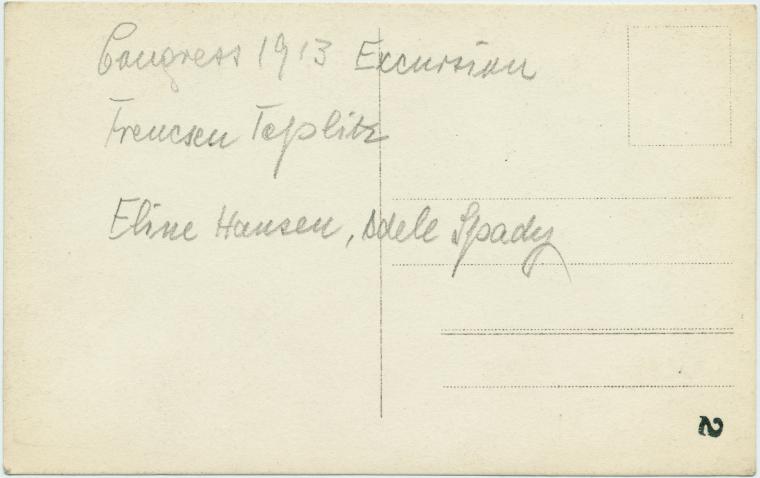 Congress 1913 Excursion
Trencsen Teplitz
Eline Hansen, Adele Spady
2